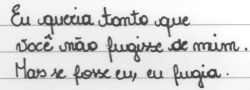 Eu queria tanto que
você não fugisse de mim.
Mas se fosse eu, eu fugia.